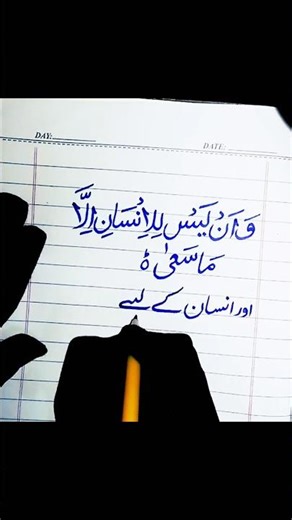 DAY: DATE:
وَاَنْ لَیْسَ لِلْاِنْسَانِ اِلَّا
مَا سَعٰی ہ
اور انسان کے لیے